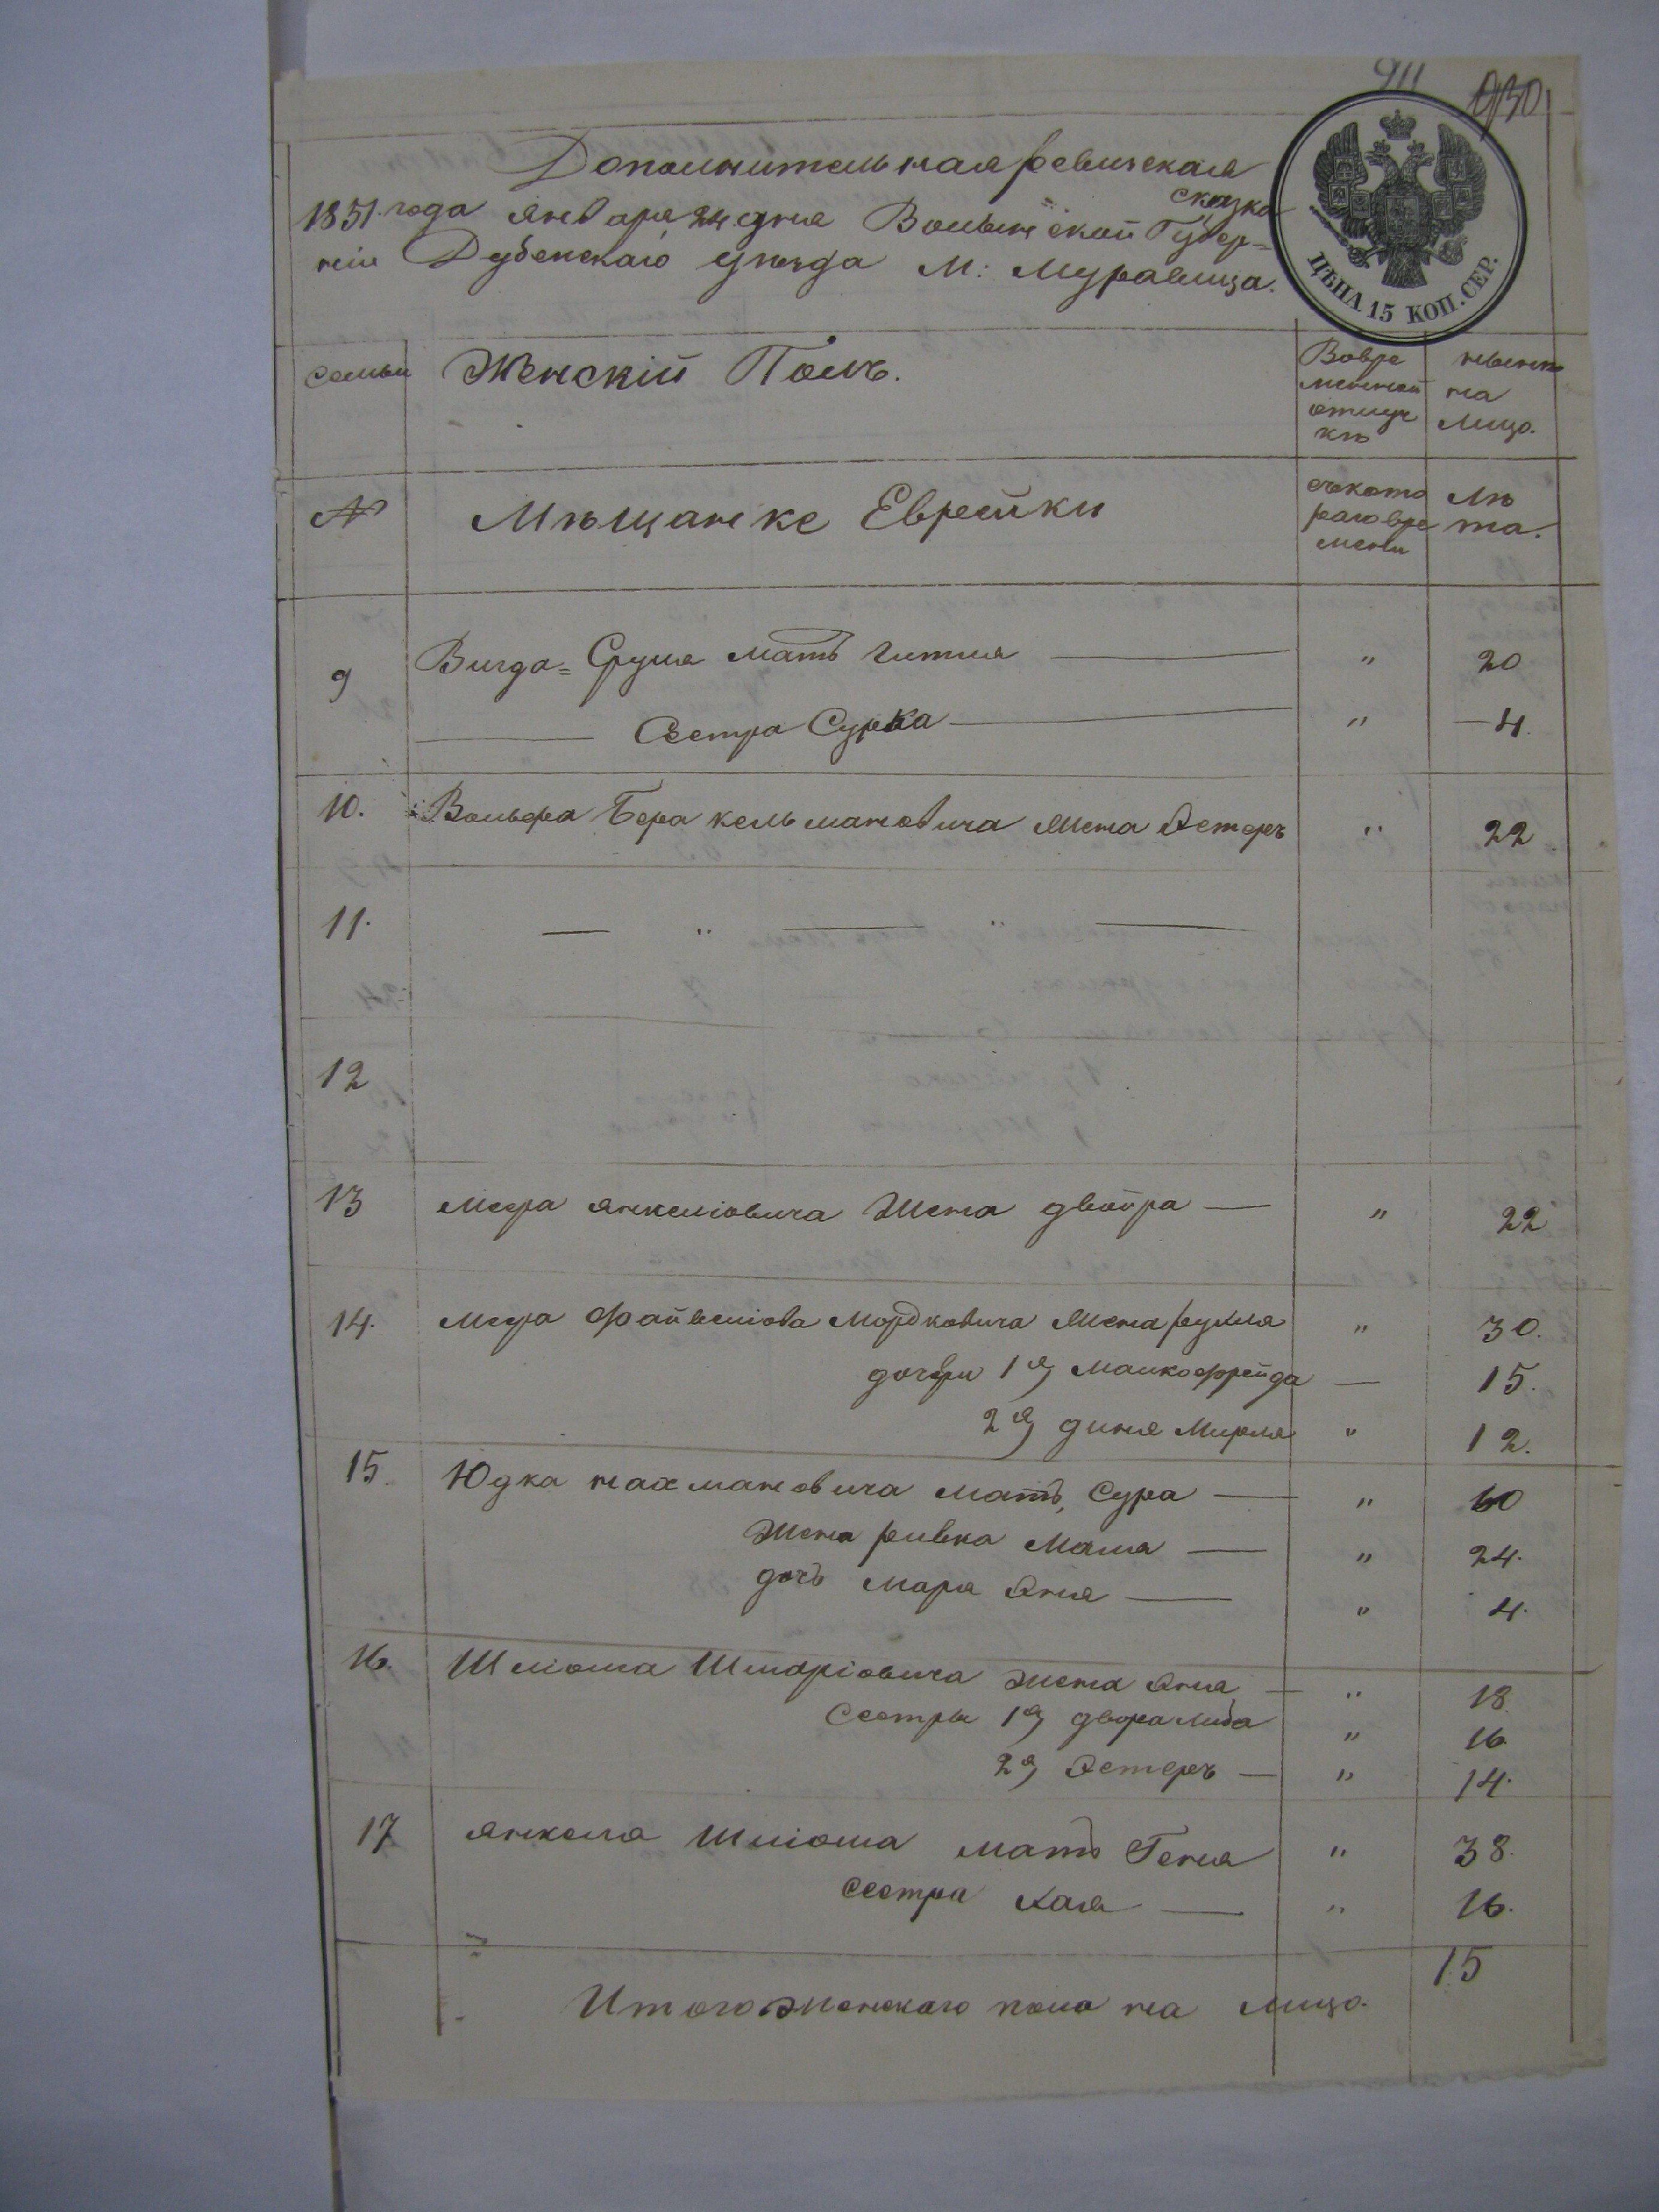 911 930
Дополнительная ревизская
сказка
1851 года Января 24 дня Волынской Губер=
ніи Дубенскаго уѣзда М: Муравица.
ЦѢНА 15 КОП. СЕР.
семьи Женскій Полъ. Вовре нынѣ
менной на
отлуч лицо.
кѣ
№ Мѣщанке Еврейки съкото Лѣ
раго вре та.
мени
9 мать Гитля " 20
Сестра Сурка " 4.
10. Вольфа Бера Кельмановича Жена Эстеръ " 22
11. " "
12
13 Меера Янкеліовича Жена Двойра " 22
14. Меера Файвеліова Мордковича Жена Рухля " 30.
дочери 1я, Малкофрейда 15.
2я, Диня Мирля " 12.
15. Юдка Нахмановича мать, Сура " 60
Жена Ривка Маля " 24.
дочь Мара Эня " 4.
16. Шліома Шмаріовича жена Эня " 18.
Сестры 1я, Двора Либа " 16.
2я, Эстеръ " 14.
17 Янкеля Шліома мать Геня " 38.
сестра Хая " 16.
Итого женскаго пола на лицо. 15